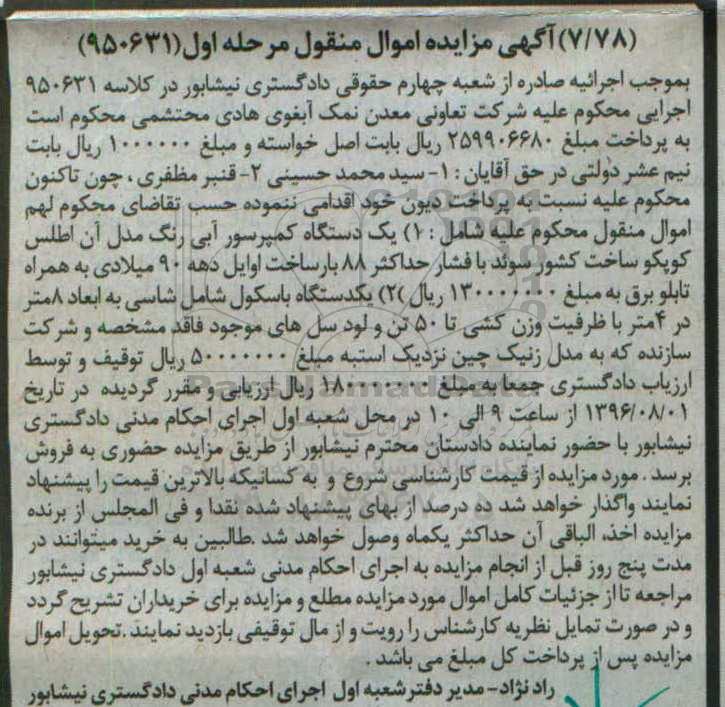 (۷/۷۸)آگهی مزایده اموال منقول مرحله اول(۹۵۰۶۳۱)
بموجب اجرائیه صادره از شعبه چهارم حقوقی دادگستری نیشابور در کلاسه ۹۵۰۶۳۱
اجرایی محکوم علیه شرکت تعاونی معدن نمک آبغوی هادی محتشمی محکوم است
به پرداخت مبلغ ۲۵۹۹۰۶۶۸۰ ریال بابت اصل خواسته و مبلغ ۱۰۰۰۰۰۰ ریال بابت
نیم عشر دولتی در حق آقایان : ۱- سید محمد حسینی ۲- قنبر مظفری ، چون تاکنون
محکوم علیه نسبت به پرداخت دیون خود اقدامی ننموده حسب تقاضای محکوم لهم
اموال منقول محکوم علیه شامل : ۱) یک دستگاه کمپرسور آبی رنگ مدل آن اطلس
کوپکو ساخت کشور سوئد با فشار حداکثر ۸۸ بارساخت اوایل دهه ۹۰ میلادی به همراه
تابلو برق به مبلغ ۱۳۰۰۰۰۰۰۰ ریال )۲) یکدستگاه باسکول شامل شاسی به ابعاد ۸متر
در ۴متر با ظرفیت وزن کشی تا ۵۰ تن و لود سل های موجود فاقد مشخصه و شرکت
سازنده که به مدل زنیک چین نزدیک استبه مبلغ ۵۰۰۰۰۰۰۰ ریال توقیف و توسط
ارزیاب دادگستری جمعا به مبلغ ۱۸۰۰۰۰۰۰۰ ریال ارزیابی و مقرر گردیده در تاریخ
۱۳۹۶/۰۸/۰۱ از ساعت ۹ الی ۱۰ در محل شعبه اول اجرای احکام مدنی دادگستری
نیشابور با حضور نماینده دادستان محترم نیشابور از طریق مزایده حضوری به فروش
برسد . مورد مزایده از قیمت کارشناسی شروع و به کسانیکه بالاترین قیمت را پیشنهاد
نمایند واگذار خواهد شد ده درصد از بهای پیشنهاد شده نقدا و فی المجلس از برنده
مزایده اخذ، الباقی آن حداکثر یکماه وصول خواهد شد .طالبین به خرید میتوانند در
مدت پنج روز قبل از انجام مزایده به اجرای احکام مدنی شعبه اول دادگستری نیشابور
مراجعه تا از جزئیات کامل اموال مورد مزایده مطلع و مزایده برای خریداران تشریح گردد
و در صورت تمایل نظریه کارشناس را رویت و از مال توقیفی بازدید نمایند .تحویل اموال
مزایده پس از پرداخت کل مبلغ می باشد .
راد نژاد- مدیر دفتر شعبه اول اجرای احکام مدنی دادگستری نیشابور